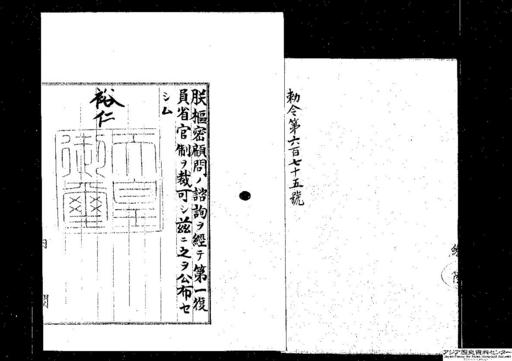 勅令第六百七十五號
朕樞密顧問ノ諮詢ヲ經テ第一復
員省官制ヲ裁可シ茲ニ之ヲ公布セ
シム
裕仁
天皇
御璽
内閣
アジア歴史資料センター